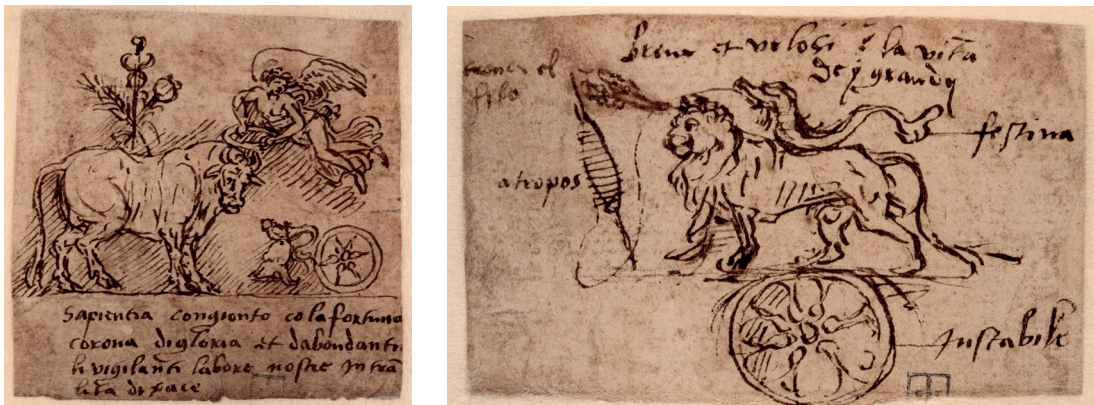 Sapientia congionto co la fortuna
corona di gloria et dabondanti
li vigilanti labore nostre in tra
de pace
Breve et velosi è la vita
de grandi
el
filo
festina
atropos
instabile